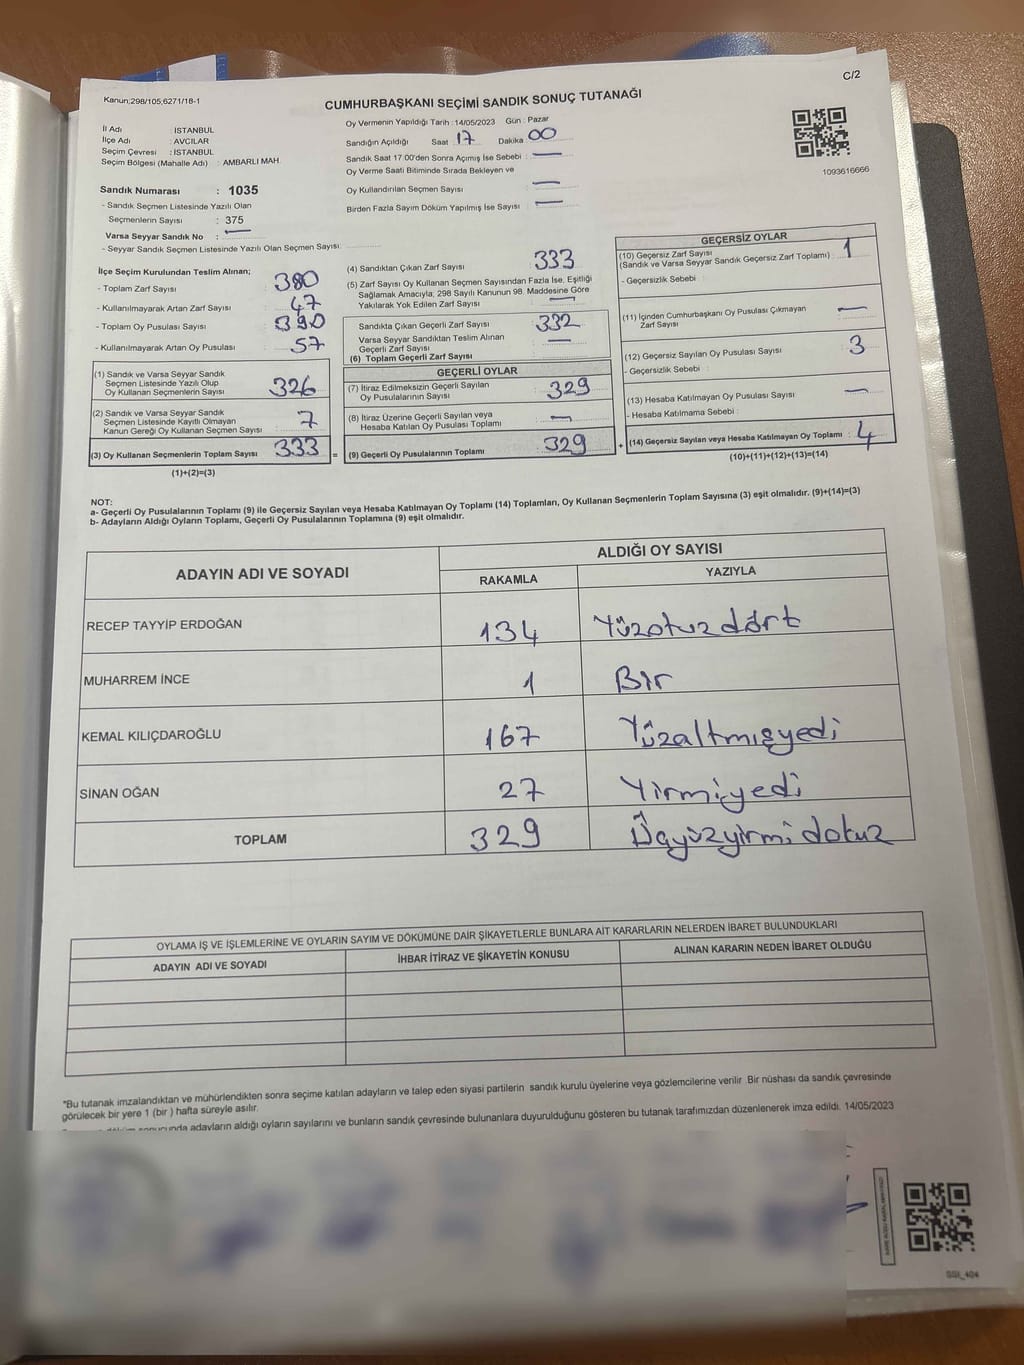 C/2
Kanun;298/105,6271/18-1
CUMHURBAŞKANI SEÇİMİ SANDIK SONUÇ TUTANAĞI
İl Adı : İSTANBUL
İlçe Adı : AVCILAR
Seçim Çevresi : İSTANBUL
Seçim Bölgesi (Mahalle Adı) : AMBARLI MAH.
Sandık Numarası : 1035
- Sandık Seçmen Listesinde Yazılı Olan
Seçmenlerin Sayısı : 375
Varsa Seyyar Sandık No : —
- Seyyar Sandık Seçmen Listesinde Yazılı Olan Seçmen Sayısı:
Oy Vermenin Yapıldığı Tarih : 14/05/2023 Gün : Pazar
Sandığın Açıldığı Saat : 17 Dakika : 00
Sandık Saat 17.00'den Sonra Açımış İse Sebebi : —
Oy Verme Saati Bitiminde Sırada Bekleyen ve
Oy Kullandırılan Seçmen Sayısı : —
Birden Fazla Sayım Döküm Yapılmış İse Sayısı : —
1093616666
İlçe Seçim Kurulundan Teslim Alınan;
- Toplam Zarf Sayısı : 380
- Kullanılmayarak Artan Zarf Sayısı : 47
- Toplam Oy Pusulası Sayısı : 390
- Kullanılmayarak Artan Oy Pusulası : 57
(1) Sandık ve Varsa Seyyar Sandık
Seçmen Listesinde Yazılı Olup
Oy Kullanan Seçmenlerin Sayısı : 326
(2) Sandık ve Varsa Seyyar Sandık
Seçmen Listesinde Kayıtlı Olmayan
Kanun Gereği Oy Kullanan Seçmen Sayısı : 7
(3) Oy Kullanan Seçmenlerin Toplam Sayısı : 333 =
(1)+(2)=(3)
(4) Sandıktan Çıkan Zarf Sayısı : 333
(5) Zarf Sayısı Oy Kullanan Seçmen Sayısından Fazla İse, Eşitliği
Sağlamak Amacıyla, 298 Sayılı Kanunun 98. Maddesine Göre
Yakılarak Yok Edilen Zarf Sayısı : —
Sandıkta Çıkan Geçerli Zarf Sayısı : 332
Varsa Seyyar Sandıktan Teslim Alınan
Geçerli Zarf Sayısı : —
(6) Toplam Geçerli Zarf Sayısı :
GEÇERLİ OYLAR
(7) İtiraz Edilmeksizin Geçerli Sayılan
Oy Pusulasının Sayısı : 329
(8) İtiraz Üzerine Geçerli Sayılan veya
Hesaba Katılan Oy Pusulası Toplamı : —
(9) Geçerli Oy Pusulalarının Toplamı : 329 +
GEÇERSİZ OYLAR
(10) Geçersiz Zarf Sayısı
(Sandık ve Varsa Seyyar Sandık Geçersiz Zarf Toplamı) : 1
- Geçersizlik Sebebi :
(11) İçinden Cumhurbaşkanı Oy Pusulası Çıkmayan
Zarf Sayısı : —
(12) Geçersiz Sayılan Oy Pusulası Sayısı : 3
- Geçersizlik Sebebi :
(13) Hesaba Katılmayan Oy Pusulası Sayısı : —
- Hesaba Katılmama Sebebi :
(14) Geçersiz Sayılan veya Hesaba Katılmayan Oy Toplamı : 4
(10)+(11)+(12)+(13)=(14)
NOT:
a- Geçerli Oy Pusulalarının Toplamı (9) ile Geçersiz Sayılan veya Hesaba Katılmayan Oy Toplamı (14) Toplamları, Oy Kullanan Seçmenlerin Toplam Sayısına (3) eşit olmalıdır. (9)+(14)=(3)
b- Adayların Aldığı Oyların Toplamı, Geçerli Oy Pusulalarının Toplamına (9) eşit olmalıdır.
ADAYIN ADI VE SOYADI
ALDIĞI OY SAYISI
RAKAMLA YAZIYLA
RECEP TAYYİP ERDOĞAN 134 Yüzotuzdört
MUHARREM İNCE 1 Bir
KEMAL KILIÇDAROĞLU 167 Yüzaltmışyedi
SİNAN OĞAN 27 Yirmiyedi
TOPLAM 329 Üçyüzyirmidokuz
OYLAMA İŞ VE İŞLEMLERİNE VE OYLARIN SAYIM VE DÖKÜMÜNE DAİR ŞİKAYETLERLE BUNLARA AİT KARARLARIN NELERDEN İBARET BULUNDUKLARI
ADAYIN ADI VE SOYADI İHBAR İTİRAZ VE ŞİKAYETİN KONUSU ALINAN KARARIN NEDEN İBARET OLDUĞU
*Bu tutanak imzalandıktan ve mühürlendikten sonra seçime katılan adayların ve talep eden siyasi partilerin sandık kurulu üyelerine veya gözlemcilerine verilir. Bir nüshası da sandık çevresinde
görülecek bir yere 1 (bir ) hafta süreyle asılır.
adayların aldığı oyların sayılarını ve bunların sandık çevresinde bulunanlara duyurulduğunu gösteren bu tutanak tarafımızdan düzenlenerek imza edildi. 14/05/2023